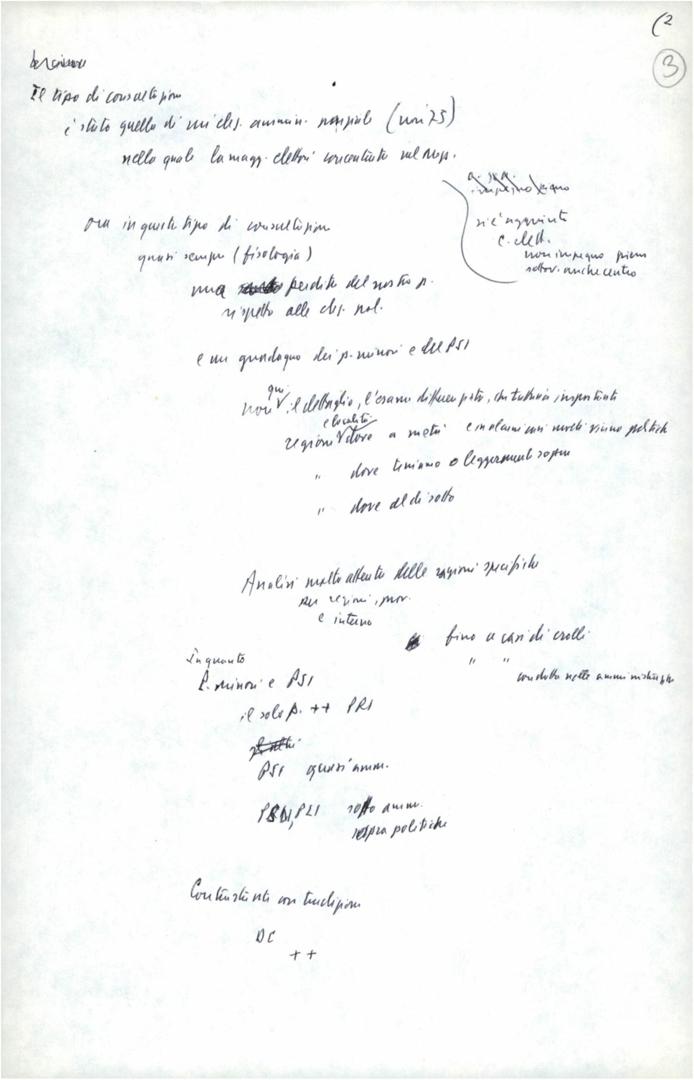 (2
3
Il tipo di consultazione
è stato quello di un'elez. ammin. parziale (non 75)
nella quale la magg. elettori concentrata nel Mezz.
si è aggiunta
c. elett.
non impegno pieno
sottov. anche centro
ora in queste tipo di consultazioni
quasi sempre (fisiologia)
una perdita del nostro p.
rispetto alle elez. pol.
e un guadagno dei p. minori e del PSI
qui
non il dettaglio, l'esame differenziato, che tuttavia importante
e località
regioni dove a metà e in alcuni casi molto vicino politiche
" dove teniamo o leggermente sopra
" dove al di sotto
Analisi molto attenta delle ragioni specifiche
per regioni, prov.
e interno
fino a casi di crolli
" "
condotta nelle amministrazioni
In quanto
P. minori e PSI
il solo p. ++ PRI
PSI quasi amm.
PSDI, PLI sotto amm.
sopra politiche
Contrastante con tradizione
DC
++